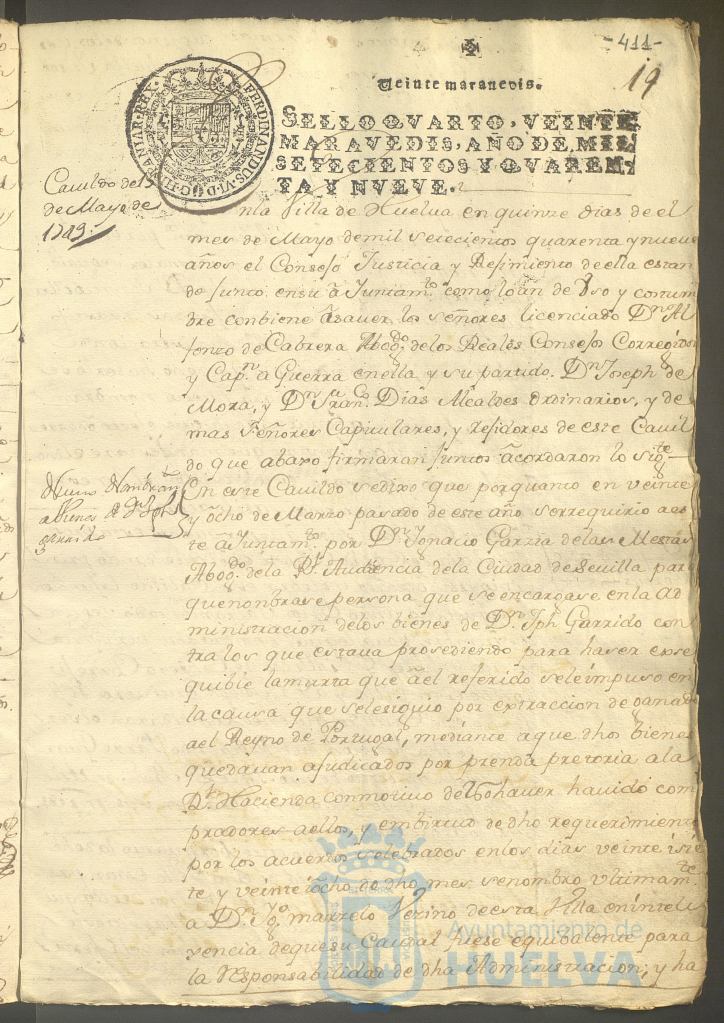 -411-
19
Veinte maravedis.
FERDINANDUS. VI. D. G. HISPANIAR. REX.
SELLO QVARTO, VEINTE
MARAVEDIS, AÑO DE MIL
SETECIENTOS Y QVAREN-
TA Y NVEVE.
Cavildo de 15
de Mayo de
1749.
Enla Villa de Huelva en quinze dias de el
mes de Mayo de mil setecientos quarenta y nueve
años el Consejo Justicia y Rejimiento de ella estan
do junto en su aJuntamto. como lo an de Vso y costum
bre conbiene asaver los señores licenciado Dn. Al
fonzo de Cabrera Abogdo. delos Reales Consejos Corregidor
y Capn. a Guerra en ella y su partido. Dn. Joseph de
Mora, y Dn. Franco. Dias Alcaldes Ordinarios, y de
mas Señores Capitulares, y rejidores de este Cavil
do que abaxo firmaran juntos acordaron lo sigte.
Nuevo Nombram
a Vienes de Dn. Jph
Garrido
En este Cavildo se dixo que por quanto en veinte
y ocho de Marzo pasado de este año se rrequirio a es
te aJuntamto. por Dn. Ignacio Garzia delas Mestas
Abogdo. de la Rl. Audiencia dela Ciudad de Sevilla para
que nonbrase persona que se encargase en la ad
ministracion delos bienes de Dn. Jph Garrido con
tra los que estava prosediendo para haser exse
quible la murta que a el referido se le inpuso en
la causa que se le siguio por extraccion de ganado
a el Reyno de Portugal, mediante a que dhos bienes
quedavan ajudicados por prenda pretoria a la
Rl. Hacienda con motivo de no haver havido com
pradores a ellos, y embirtud de dho requerimiento
por los acuerdos selebrados en los dias veinte i sie
te y veinte i ocho de dho mes se nombro vltimamte.
a Dn. marzelo Verino de esta Villa en inteli
xencia de que su caudal fuese equibalente para
la responsabilidad de dha Administracion; y ha
Ayuntamiento de
HUELVA